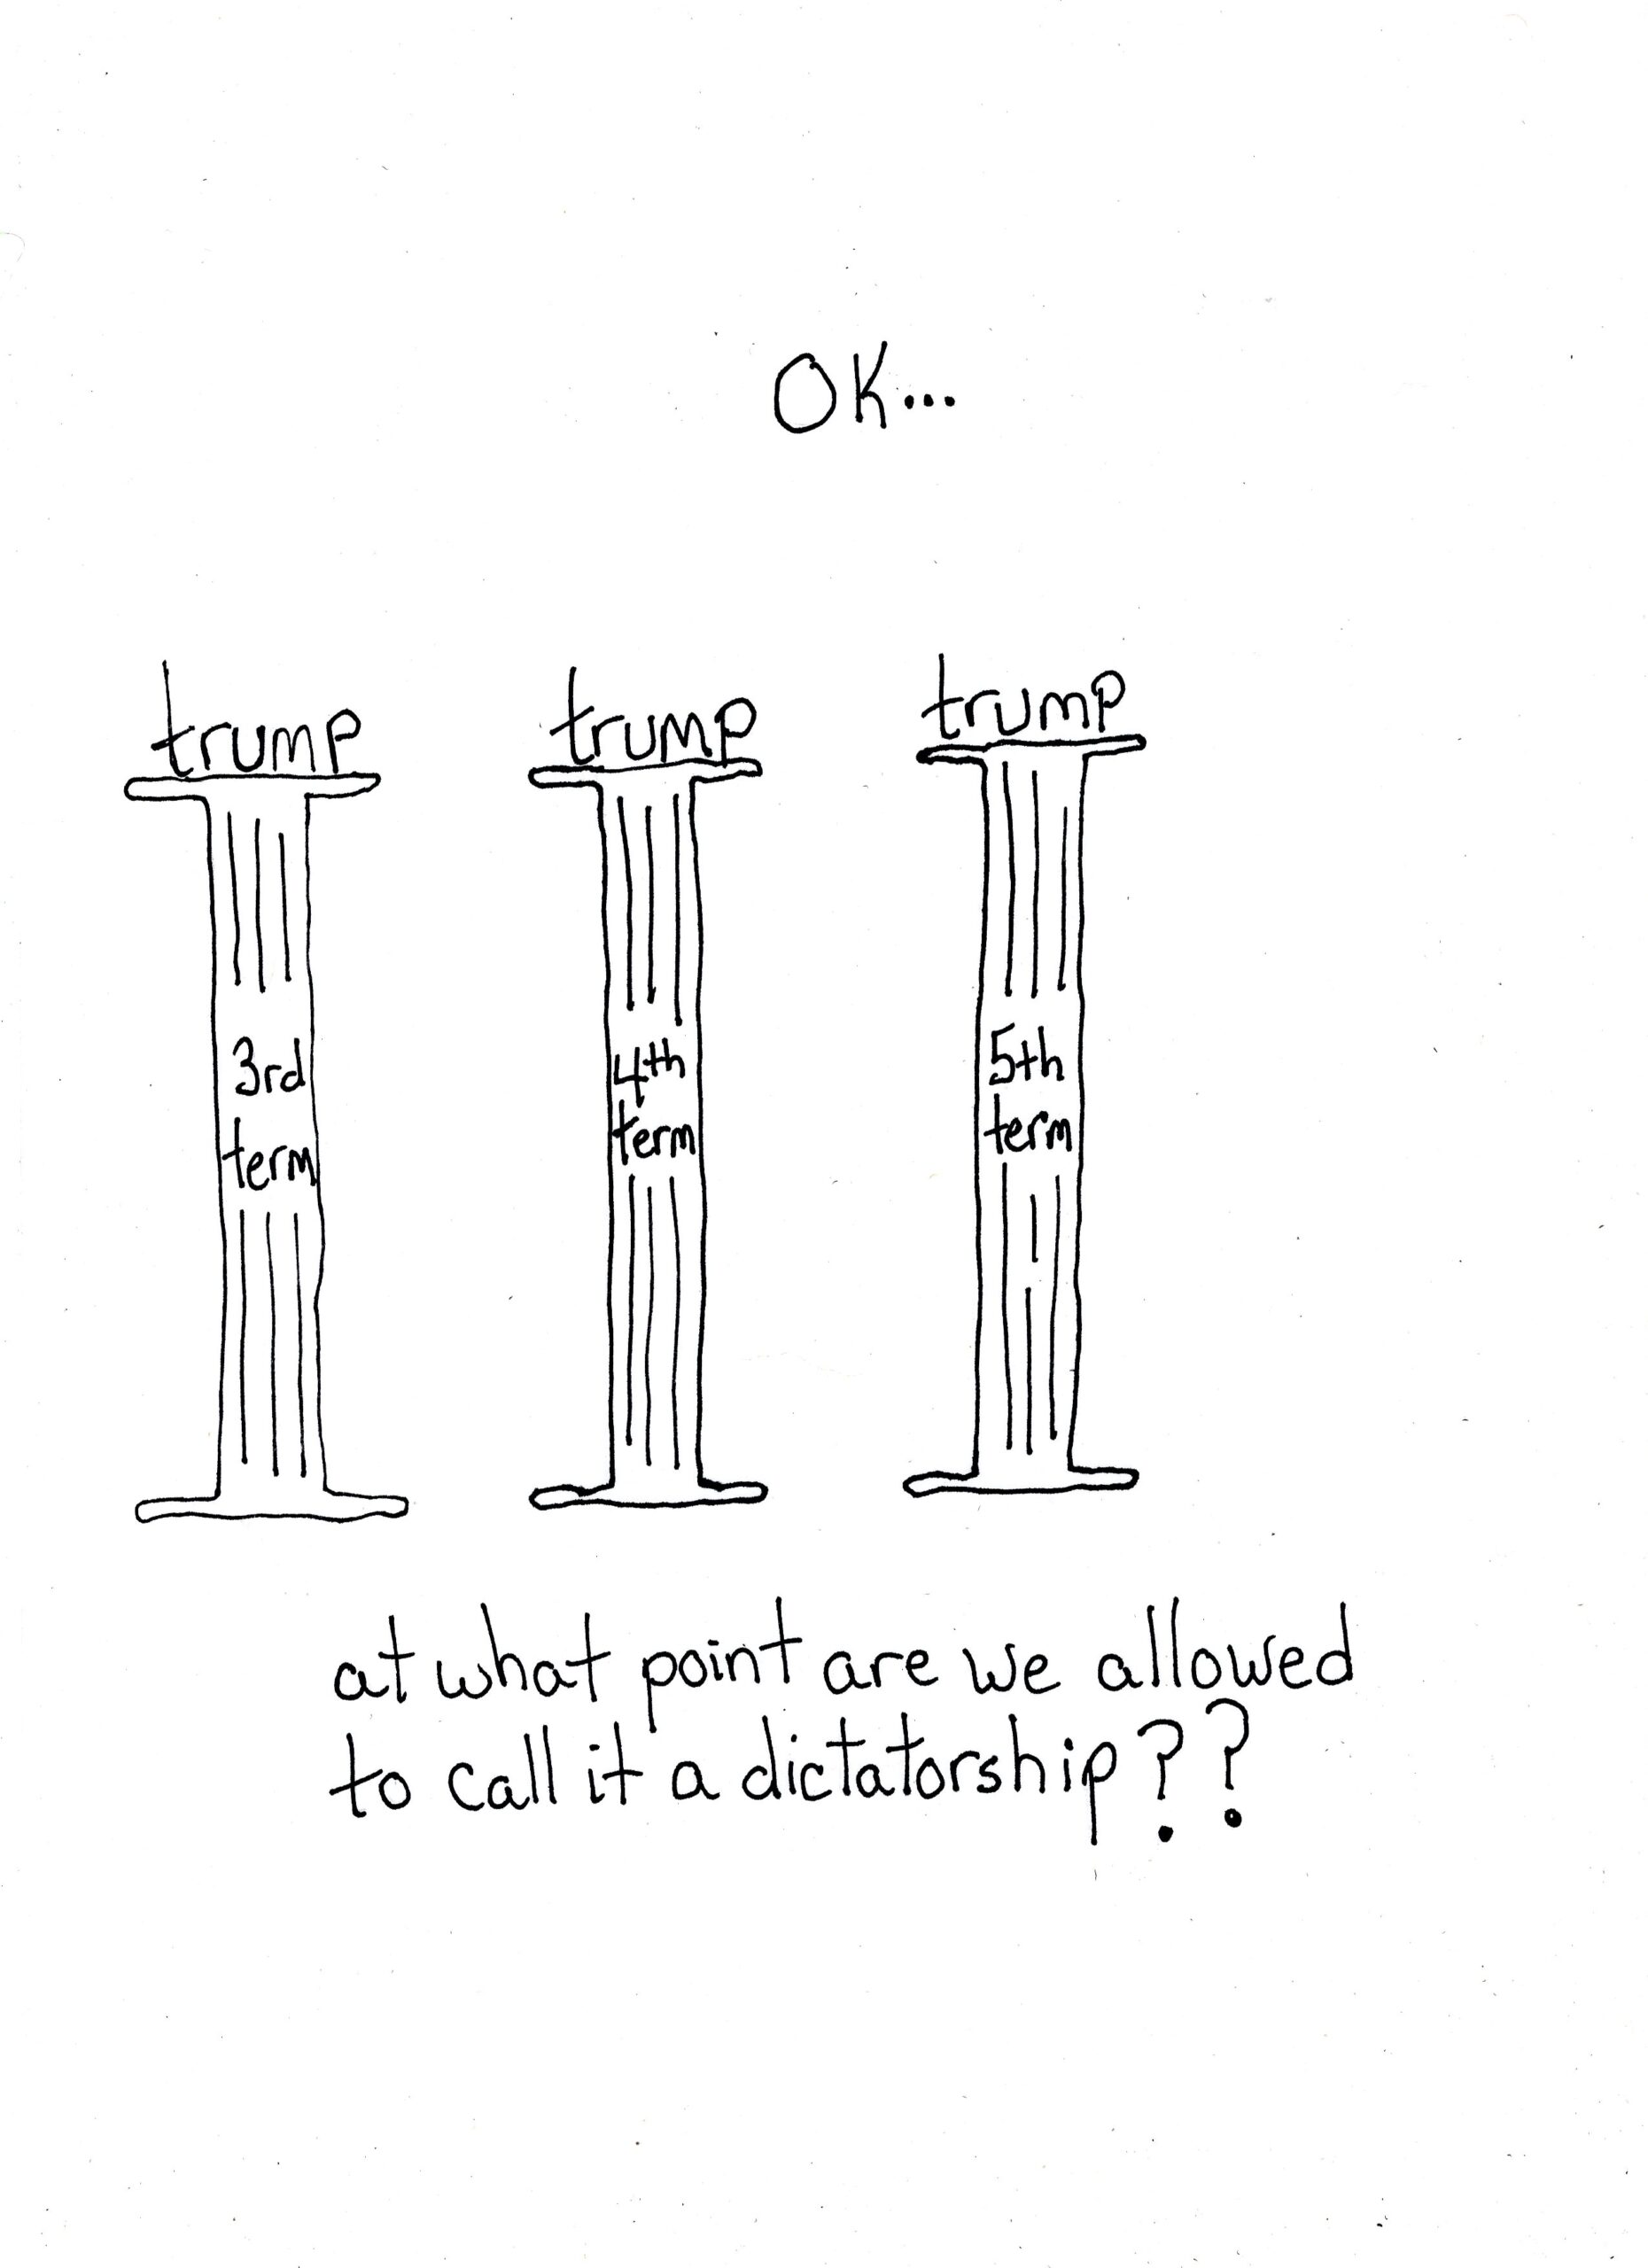 OK...
trump trump trump
3rd 4th 5th
term term term
at what point are we allowed
to call it a dictatorship??